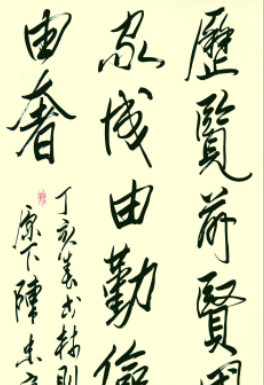 歷覽前賢國
家成由勤儉
由奢
丁亥春書林則
原下陳忠